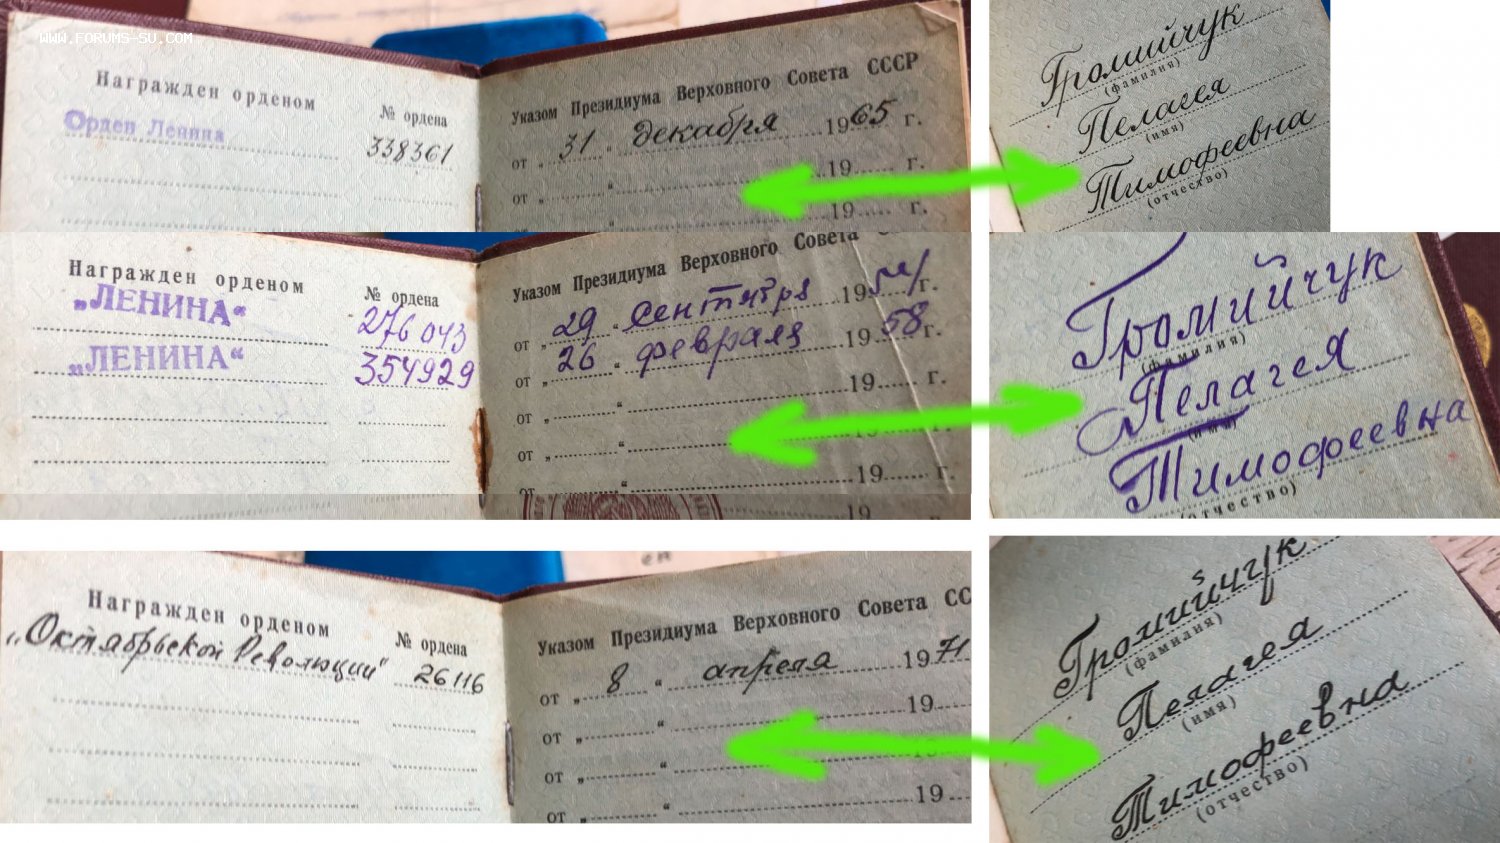 WWW.FORUMS-SU.COM
Награжден орденом
№ ордена
Орден Ленина
338361
Указом Президиума Верховного Совета СССР
от „ 31 “ декабря 1965 г.
от „ “ 19 г.
19 г.
Громийчук
(фамилия)
Пелагея
(имя)
Тимофеевна
(отчество)
Награжден орденом
№ ордена
„ЛЕНИНА“
276043
„ЛЕНИНА“
354929
Указом Президиума Верховного Совета
от „ 29 “ сентября 19 г.
от „ 26 “ февраля 1958 г.
от „ “ 19 г.
от „ “ 19 г.
от „ “ 19 г.
19
Громийчук
(фамилия)
Пелагея
(имя)
Тимофеевна
(отчество)
Награжден орденом
№ ордена
„Октябрьской Революции“
26116
Указом Президиума Верховного Совета СС
от „ 8 “ апреля 1971
от „ “ 19
от „ “ 19
от „ “ 19
Громийчук
(фамилия)
Пелагея
(имя)
Тимофеевна
(отчество)